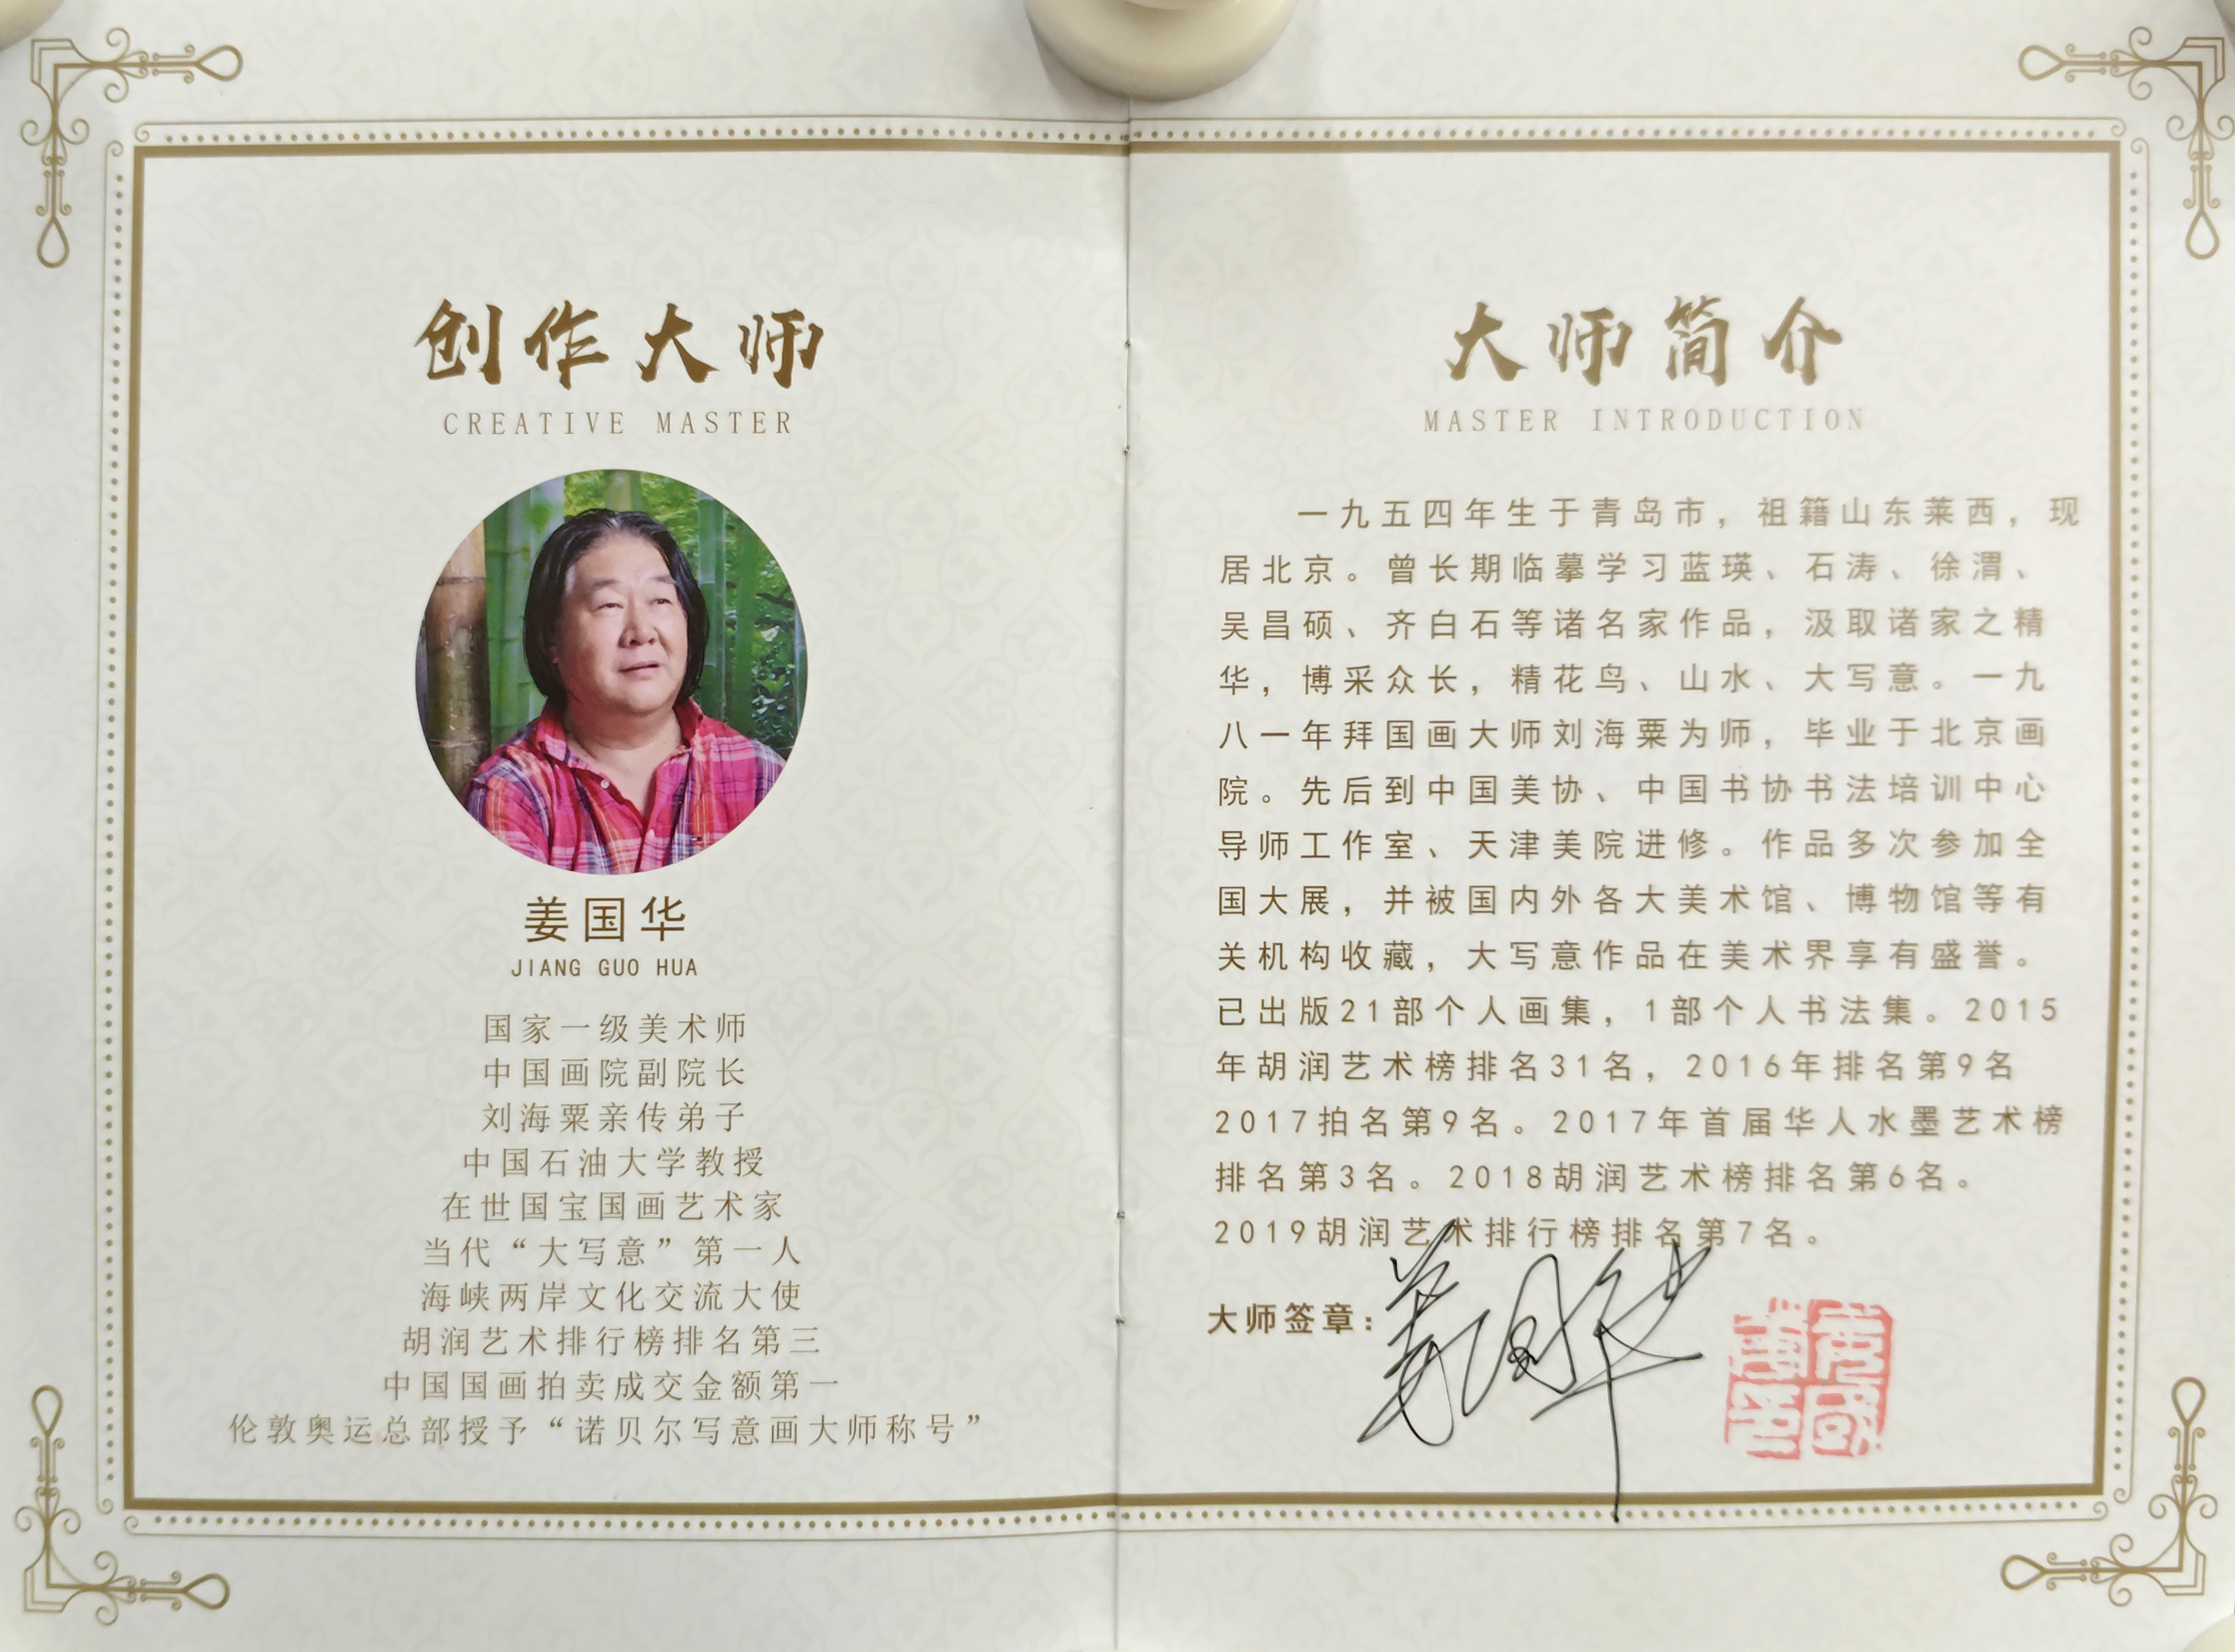 创作大师
CREATIVE MASTER
姜国华
JIANG GUO HUA
国家一级美术师
中国画院副院长
刘海粟亲传弟子
中国石油大学教授
在世国宝国画艺术家
当代“大写意”第一人
海峡两岸文化交流大使
胡润艺术排行榜排名第三
中国国画拍卖成交金额第一
伦敦奥运总部授予“诺贝尔写意画大师称号”
大师简介
MASTER INTRODUCTION
一九五四年生于青岛市，祖籍山东莱西，现
居北京。曾长期临摹学习蓝瑛、石涛、徐渭、
吴昌硕、齐白石等诸名家作品，汲取诸家之精
华，博采众长，精花鸟、山水、大写意。一九
八一年拜国画大师刘海粟为师，毕业于北京画
院。先后到中国美协、中国书协书法培训中心
导师工作室、天津美院进修。作品多次参加全
国大展，并被国内外各大美术馆、博物馆等有
关机构收藏，大写意作品在美术界享有盛誉。
已出版21部个人画集，1部个人书法集。2015
年胡润艺术榜排名31名，2016年排名第9名
2017拍名第9名。2017年首届华人水墨艺术榜
排名第3名。2018胡润艺术榜排名第6名。
2019胡润艺术排行榜排名第7名。
大师签章：姜国华